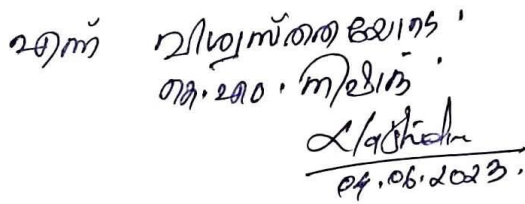 എന്ന് വിശ്വസ്തതയോടെ
കെ. എം. നിഷാദ്
04.06.2023.